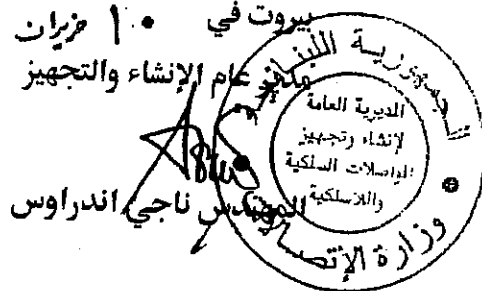 بيروت في ١٠ حزيران
مدير عام الإنشاء والتجهيز
المهندس ناجي اندراوس
الجمهورية اللبنانية
المديرية العامة
لإنشاء وتجهيز
المواصلات السلكية
واللاسلكية
وزارة الإتصالات